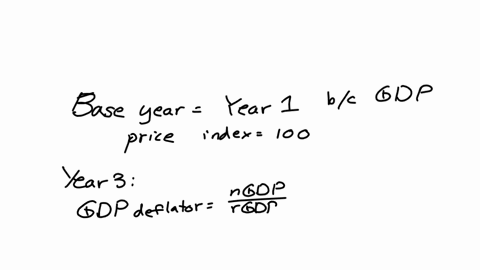 Base year = Year 1 b/c GDP
price index = 100
Year 3:
GDP deflator = nGDP
rGDP